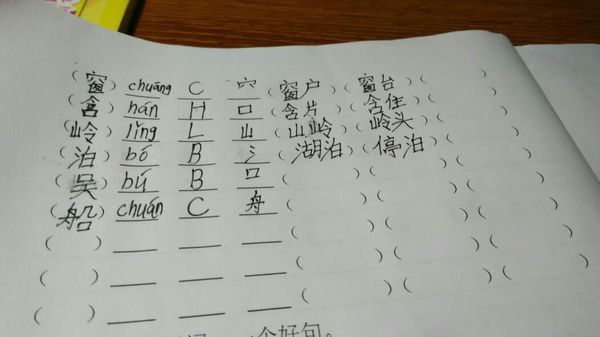 (窗) chuāng C 穴 (窗户) (窗台) ( )
(含) hán H 口 (含片) (含住) ( )
(岭) lǐng L 山 (山岭) (岭头) ( )
(泊) bó B 氵 (湖泊) (停泊) ( )
(吴) bú B 口 ( ) ( ) ( )
(船) chuán C 舟 ( ) ( ) ( )
( ) ( ) ( ) ( )
( ) ( ) ( ) ( )
( ) ( ) ( ) ( )
个好句。